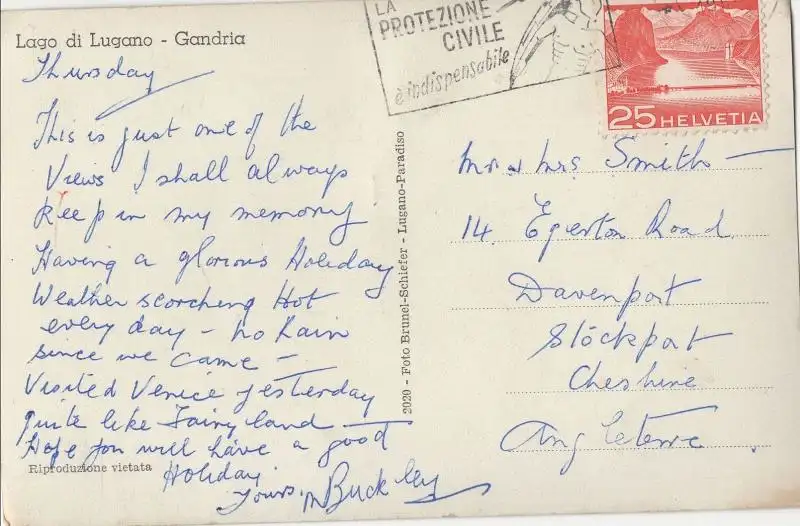 Lago di Lugano - Gandria
LA
PROTEZIONE
CIVILE
è indispensabile
25 HELVETIA
Thursday
This is just one of the
Views I shall always
Keep in my memory
Having a glorious Holiday
Weather scorching Hot
every day - no Rain
since we came -
Visited Venice yesterday
quite like Fairy land -
Hope you will have a good
Holiday.
Yours, M Buckley
Riproduzione vietata
2020 - Foto Brunel-Schiefer - Lugano-Paradiso
Mr & Mrs Smith -
14. Egerton Road
Davenport
Stockport
Cheshire
Angleterre